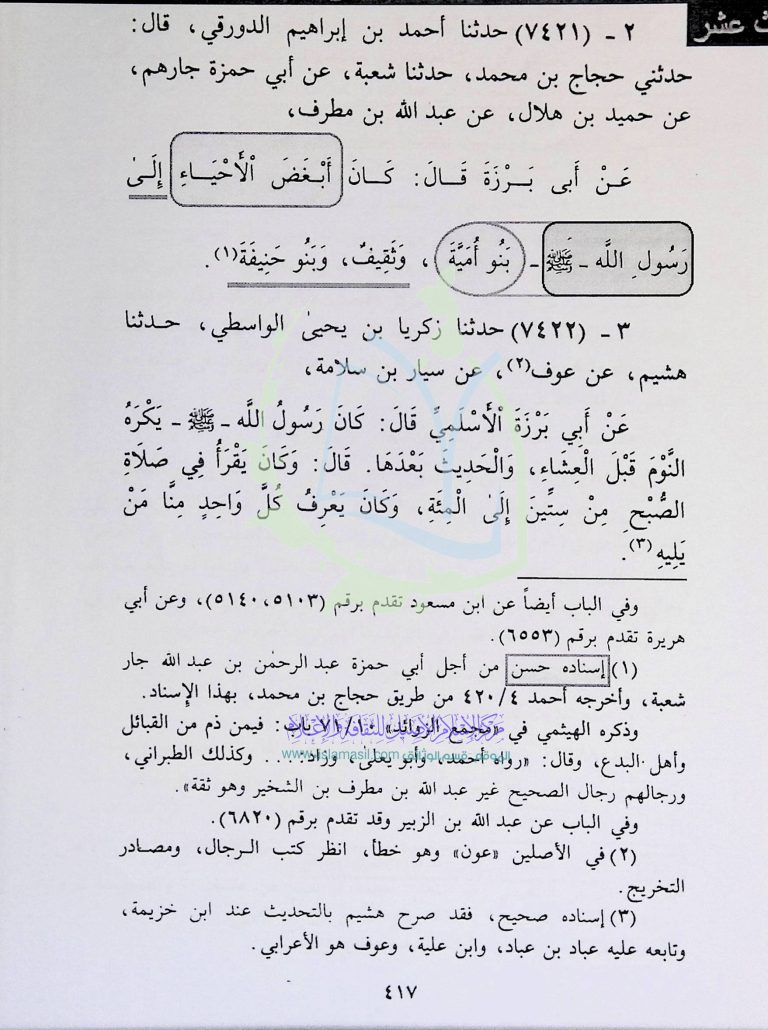 ث عشر
٢ - (٧٤٢١) حدثنا أحمد بن إبراهيم الدورقي، قال:
حدثني حجاج بن محمد، حدثنا شعبة، عن أبي حمزة جارهم،
عن حميد بن هلال، عن عبد الله بن مطرف،
عَنْ أَبى بَـرْزَةَ قَـالَ: كَـانَ أَبْغَضَ الْأَحْيَـاءِ إِلَىٰ
رَسُولِ اللَّه - ﷺ - بَنُو أُمَيَّةَ، وَثَقِيفٌ، وَبَنُو حَنِيفَةَ(١).
٣ - (٧٤٢٢) حدثنا زكريا بن يحيىٰ الواسطي، حـدثنا
هشيم، عن عوف(٢)، عن سيار بن سلامة،
عَنْ أَبي بَرْزَةَ الْأَسْلَمِيِّ قَالَ: كَانَ رَسُولُ اللَّه - ﷺ - يَكْرَهُ
النَّوْمَ قَبْلَ الْعِشَاءِ، وَالْحَدِيثَ بَعْدَهَا. قَالَ: وَكَانَ يَقْرَأُ فِي صَلَاةِ
الصُّبْحِ مِنْ سِتِّينَ إِلَىٰ الْمِئَةِ، وَكَانَ يَعْرِفُ كُلَّ وَاحِدٍ مِنَّا مَنْ
يَلِيهِ(٣).
وفي الباب أيضاً عن ابن مسعود تقدم برقم (٥١٠٣، ٥١٤٠)، وعن أبي
هريرة تقدم برقم (٦٥٥٣).
(١) إسناده حسن من أجل أبي حمزة عبد الرحمٰن بن عبد الله جار
شعبة، وأخرجه أحمد ٤/٤٢٠ من طريق حجاج بن محمد، بهذا الإِسناد.
وذكره الهيثمي في «مجمع الزوائد» ١٠/٧١ باب: فيمن ذم من القبائل
وأهل البدع، وقال: «رواه أحمد، وأبو يعلىٰ، وزاد ... وكذلك الطبراني،
www.islamasil.com
ورجالهم رجال الصحيح غير عبد الله بن مطرف بن الشخير وهو ثقة».
وفي الباب عن عبد الله بن الزبير وقد تقدم برقم (٦٨٢٠).
(٢) في الأصلين «عون» وهو خطأ، انظر كتب الـرجال، ومصـادر
التخريج.
(٣) إسناده صحيح، فقد صرح هشيم بالتحديث عند ابن خزيمة،
وتابعه عليه عباد بن عباد، وابن علية، وعوف هو الأعرابي.
٤١٧